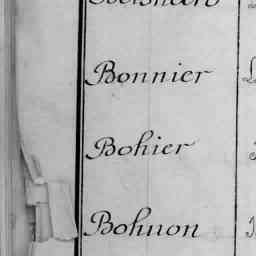 Bonnier
Bohier
Bohuon